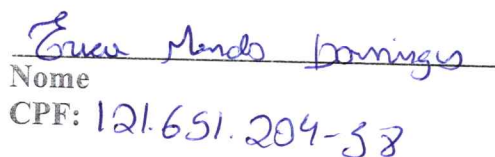 Erica Mendo Domingos
Nome
CPF: 121.651.204-38